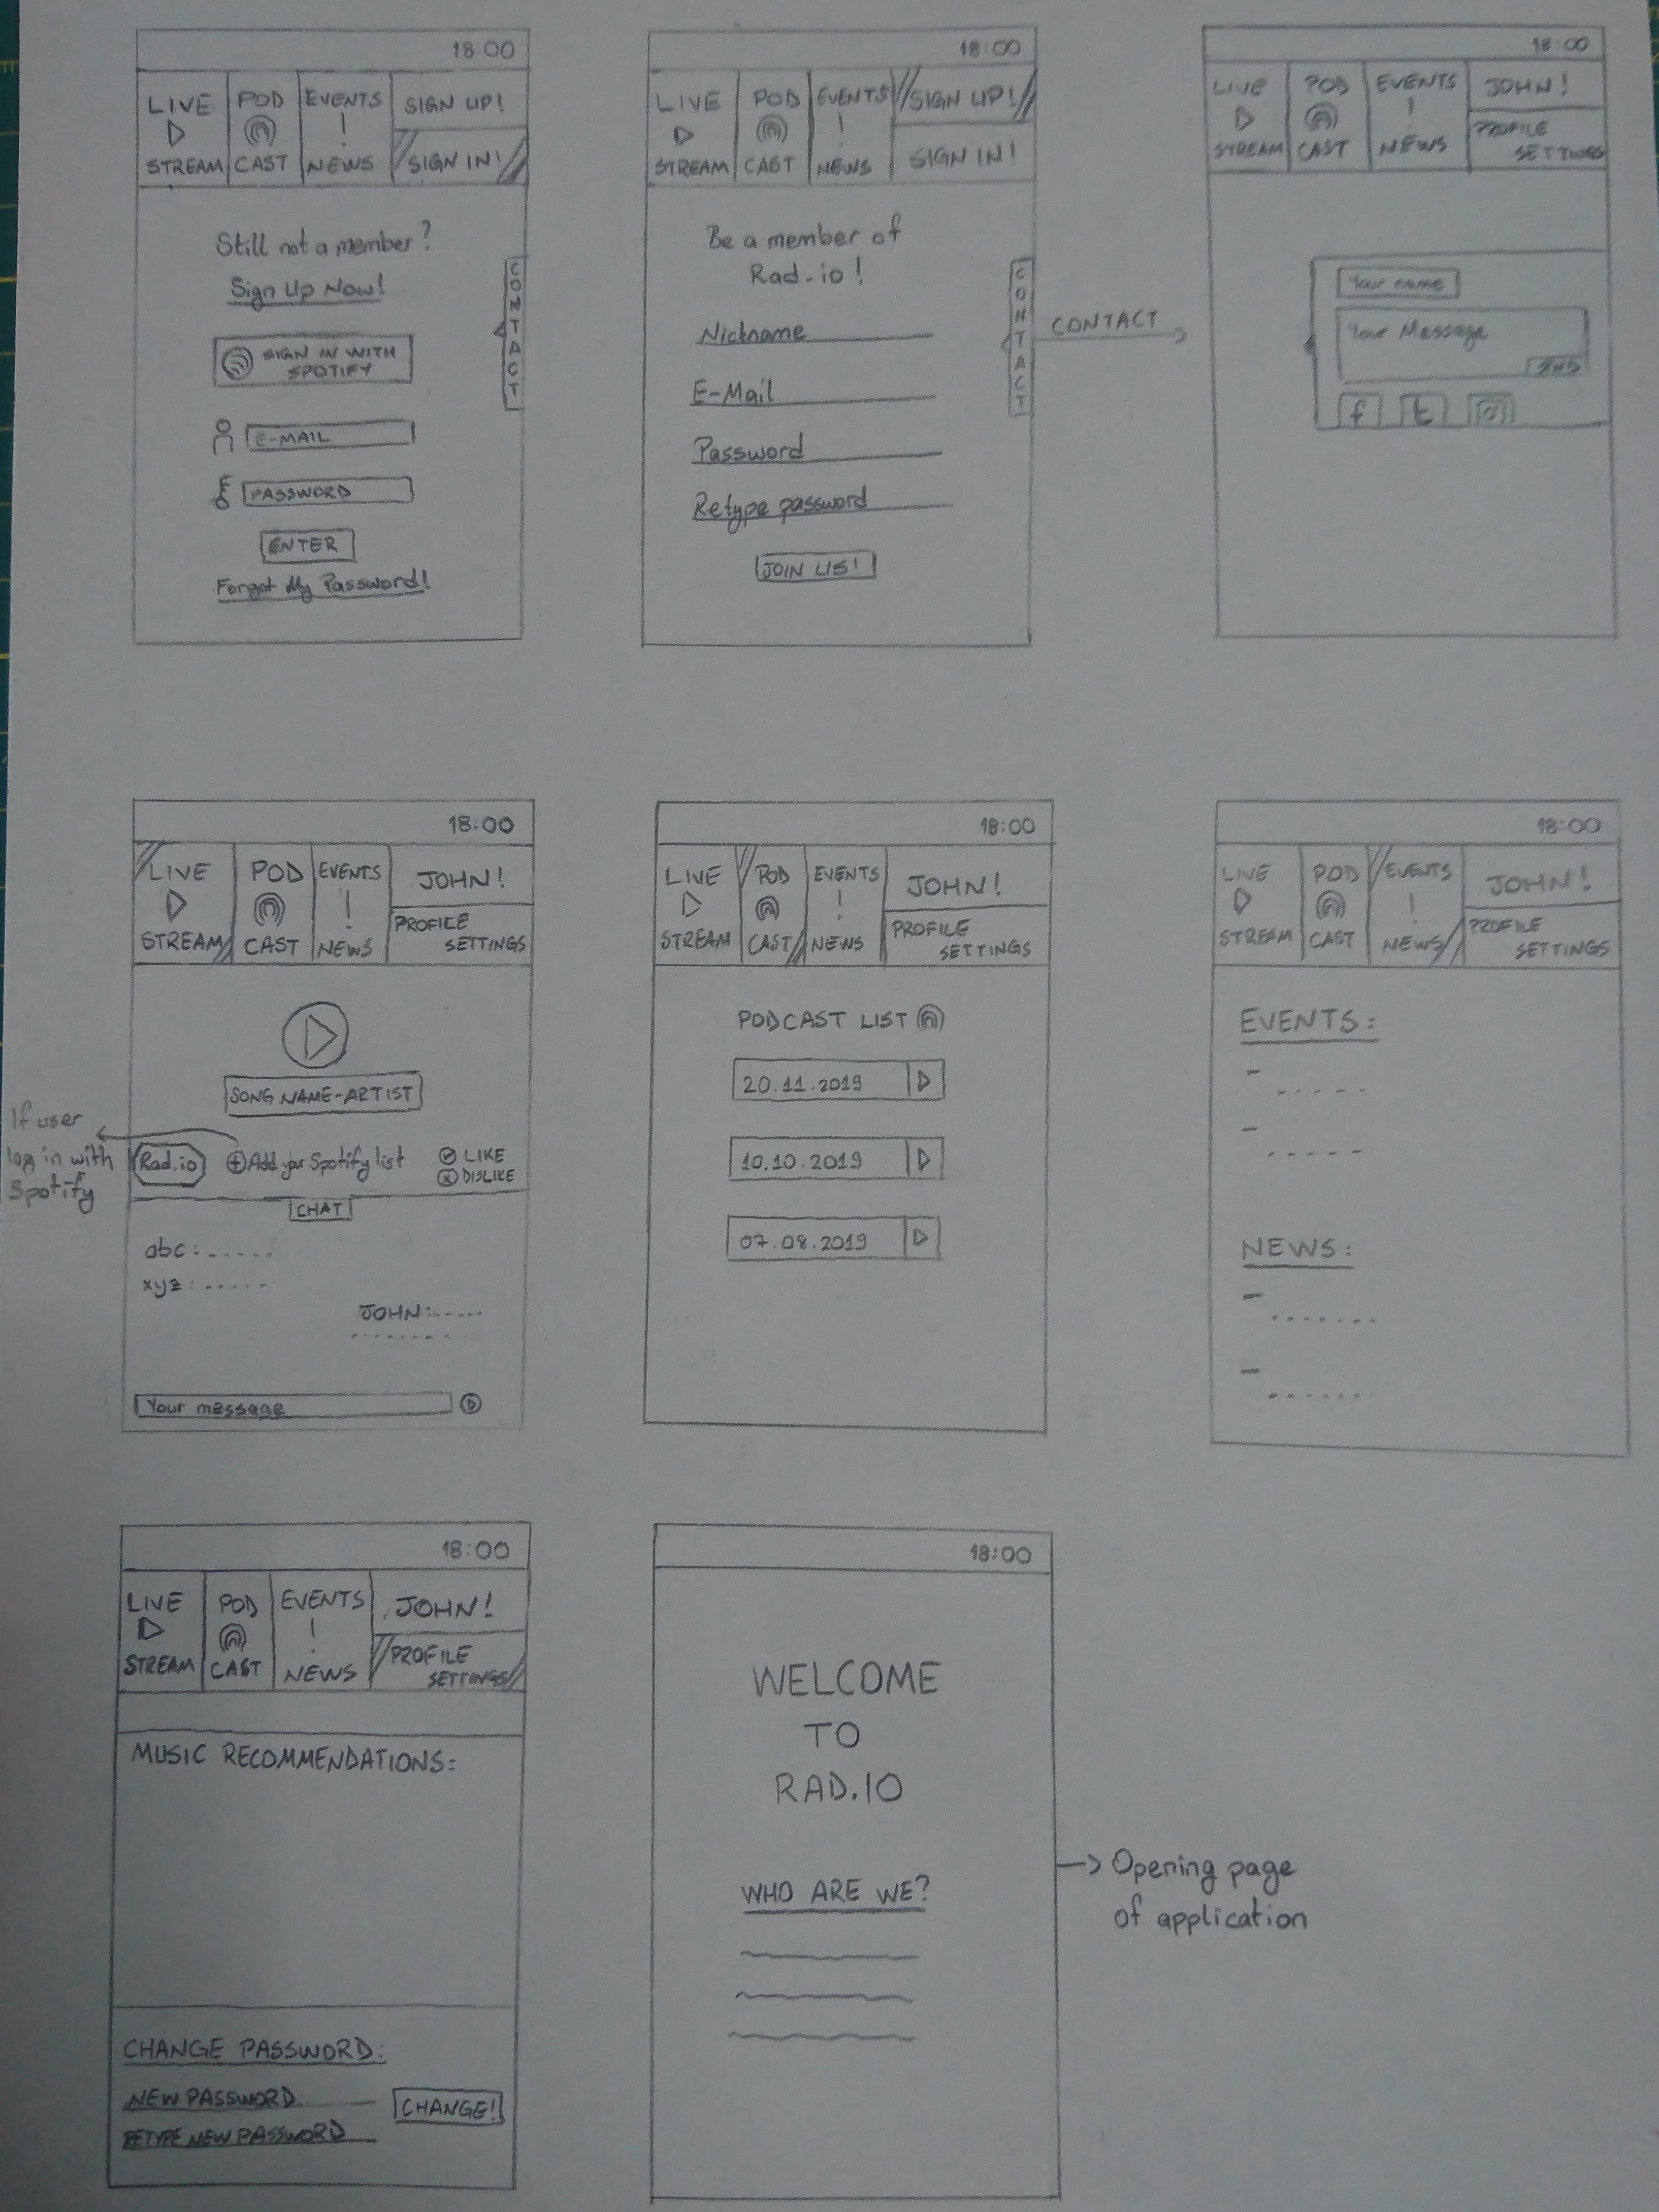 18:00
LIVE
STREAM
POD
CAST
EVENTS
!
NEWS
SIGN UP!
SIGN IN!
Still not a member?
Sign Up Now!
SIGN IN WITH
SPOTIFY
E-MAIL
PASSWORD
ENTER
Forgot My Password!
CONTACT
18:00
LIVE
STREAM
POD
CAST
EVENTS
!
NEWS
SIGN UP!
SIGN IN!
Be a member of
Rad.io!
Nickname
E-Mail
Password
Retype password
JOIN US!
CONTACT
CONTACT
18:00
LIVE
STREAM
POD
CAST
EVENTS
!
NEWS
JOHN!
PROFILE
SETTINGS
Your name
Your Message
f
t
18:00
LIVE
STREAM
POD
CAST
EVENTS
!
NEWS
JOHN!
PROFILE
SETTINGS
SONG NAME-ARTIST
If user
log in with
Spotify
Rad.io
Add your Spotify list
LIKE
DISLIKE
CHAT
abc:.....
xyz:.....
JOHN:.....
Your message
18:00
LIVE
STREAM
POD
CAST
EVENTS
!
NEWS
JOHN!
PROFILE
SETTINGS
PODCAST LIST
20.11.2019
10.10.2019
07.08.2019
18:00
LIVE
STREAM
POD
CAST
EVENTS
!
NEWS
JOHN!
PROFILE
SETTINGS
EVENTS:
NEWS:
18:00
LIVE
STREAM
POD
CAST
EVENTS
!
NEWS
JOHN!
PROFILE
SETTINGS
MUSIC RECOMMENDATIONS:
CHANGE PASSWORD:
NEW PASSWORD
RETYPE NEW PASSWORD
CHANGE!
18:00
WELCOME
TO
RAD.IO
WHO ARE WE?
Opening page
of application